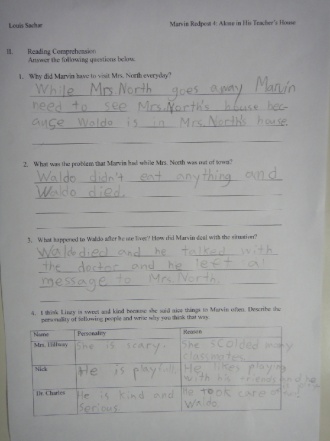 Louis Sachar Marvin Redpost #: Alone in His Teacher's House
II. Reading Comprehension
Answer the following questions below.
1. Why did Marvin have to visit Mrs. North everyday?
While Mrs. North goes away Marvin
need to see Mrs. North's house bec-
ause Waldo is in Mrs. North's house
2. What was the problem that Marvin had while Mrs. North was out of town?
Waldo didn't eat anything and
Waldo died.
3. What happened to Waldo after he ate liver? How did Marvin deal with the situation?
Waldo died and he talked with
the doctor and he left a
message to Mrs. North.
4. I think Linzy is sweet and kind because she said nice things to Marvin often. Describe the
personality of following people and write why you think that way.
Name Personality Reason
Mrs. Hillway She is scary. She scolded many
classmates.
Nick He is playfull. He likes playing
with his friends and he
Dr. Charles He is kind and He took care of
Serious. Waldo.